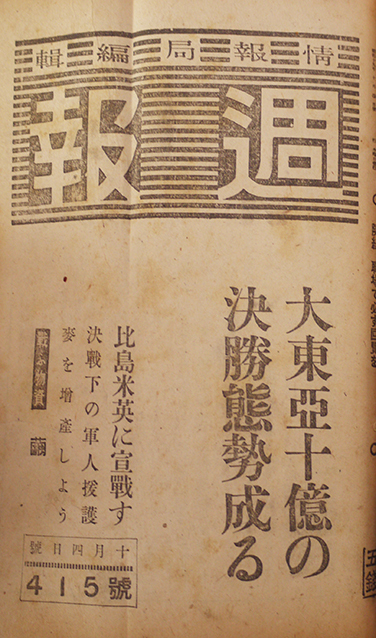 情報局編輯
週報
大東亞十億の
決勝態勢成る
比島米英に宣戰す
決戰下の軍人援護
麥を增産しよう
十月四日號
415號
五錢